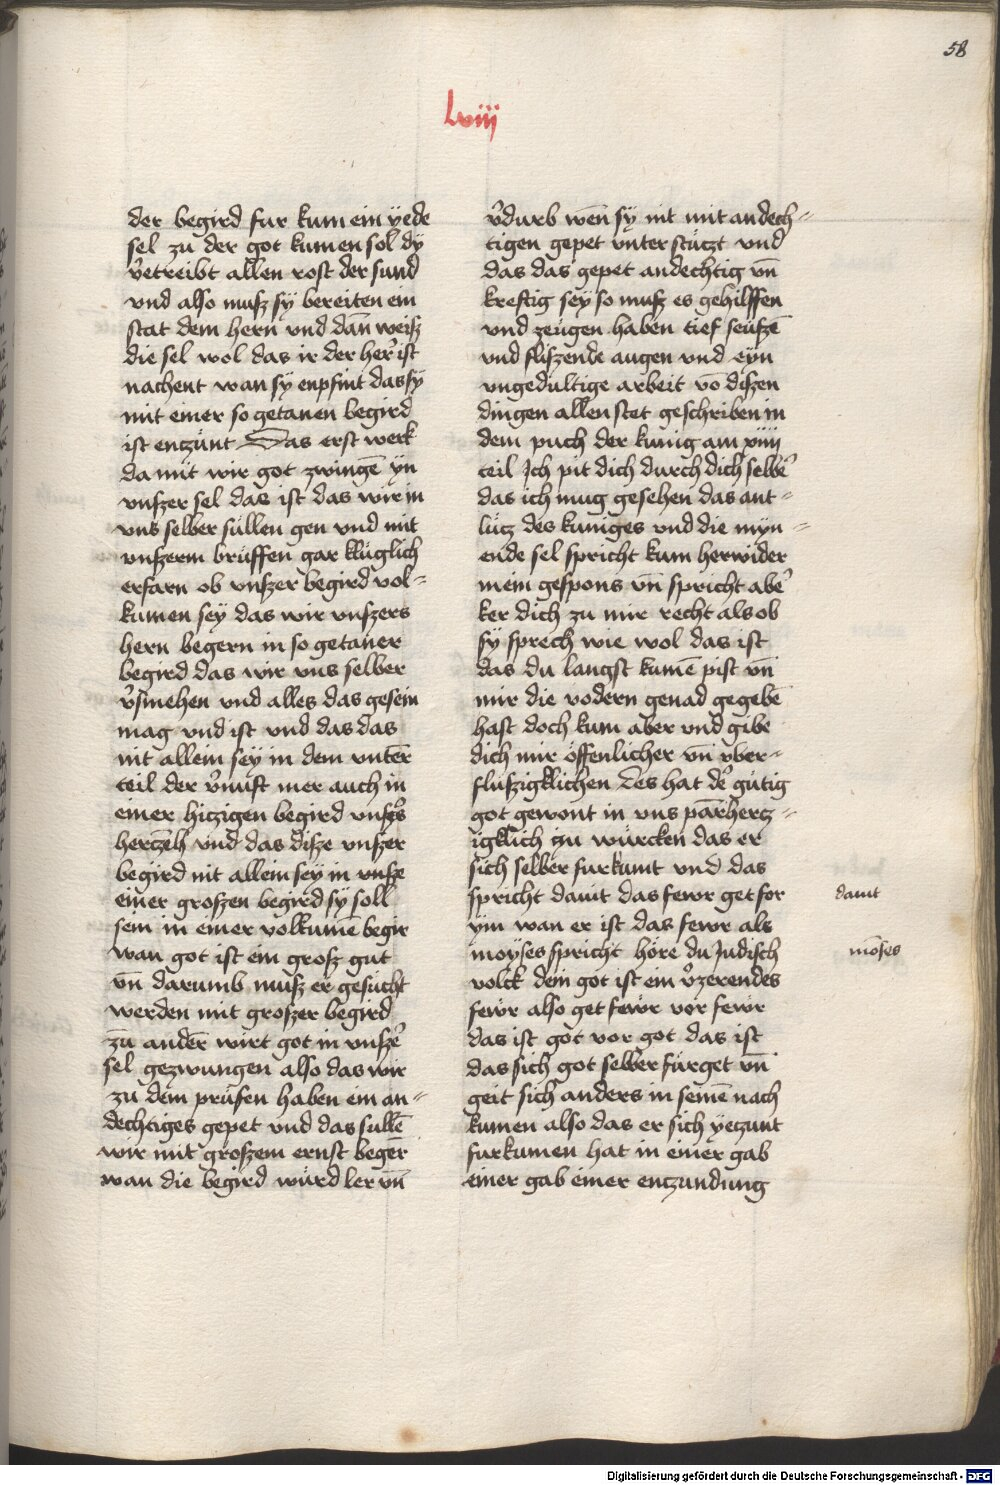 58
lviij
der begird fur kum ein yede
sel zu der got kumen sol dy
v̉etreibt allen rost der sund
vnd also musz sy bereiten ein
stat dem hern vnd dan̄ weisz
die sel wol das ir der her̉ ist
nachent wan sy enpfint das sy
mit einer so getanen begird
ist entzunt Das erst werk
da mit wir got zwingē yn
vnszer sel das ist das wir in
vns selber süllen gen vnd mit
vnszerm brüffen gar klüglich
erfarn ob vnszer begird vol=
kumen sey das wir vnszers
hern begern in so getaner
begird das wir vns selber
v̉smehen vnd alles das gesein
mag vnd ist vnd das das
nit allein sey in dem vnter̄
teil der v̉nuft mer auch in
einer hitzigen begird vnsz̉s
hertzen vnd das disze vnszer
begird nit allein sey in vnsze
einer groszen begird sy soll
sein in einer volkumē begir
wan got ist ein grosz gut
vn̄ darumb musz er gesucht
werden mit groszer begird
zū ander̄ wirt got in vnszer̉
sel gezwungen also das wir
zu dem prüfen haben ein an=
dechtiges gepet vnd das sullē
wir mit groszem ernst beger̄
wan die begird würd ler vn̄
v̉durb wen̄ sy nit mit andech=
tigen gepet vnter stützt vnd
das das gepet andechtig vn̄
kreftig sey so musz es gehilffen
vnd zeugen haben tief seufzē
vnd fliszende augen vnd eyn
vngedultige arbeit vō diszen
dingen allen stet geschriben in
dem puch der kunig am xiiij
teil Ich pit dich durch dich selber̉
das ich mug gesehen das ant=
lütz des kuniges vnd die myn=
ende sel spricht kum herwider
mein gespons vn̄ spricht aber̉
ker dich zu mir recht als ob
sy sprech wie wol das ist
das du langst kumē pist vn̄
mir die vodern genad gegebē
hast doch kum aber vnd gibe
dich mir öffenlicher vn̄ vber=
fluszigklichen des hat der̉ gütig
got gewont in vns parmhertz=
igklich zu würcken das er
sich selber furkumt vnd das
spricht damit das fewr get for
ym wan er ist das fewr als
moyses spricht höre du Judisch
volck dein got ist ein v̉zerendes
fewr also get fewr vor fewr
das ist got vor got das ist
das sich got selber fürget vn̄
geit sich anders in seinē nach
kumen also das er sich yetzunt
furkumen hat in einer gab
einer gab einer entzundung
damt
moses
Digitalisierung gefördert durch die Deutsche Forschungsgemeinschaft - DFG